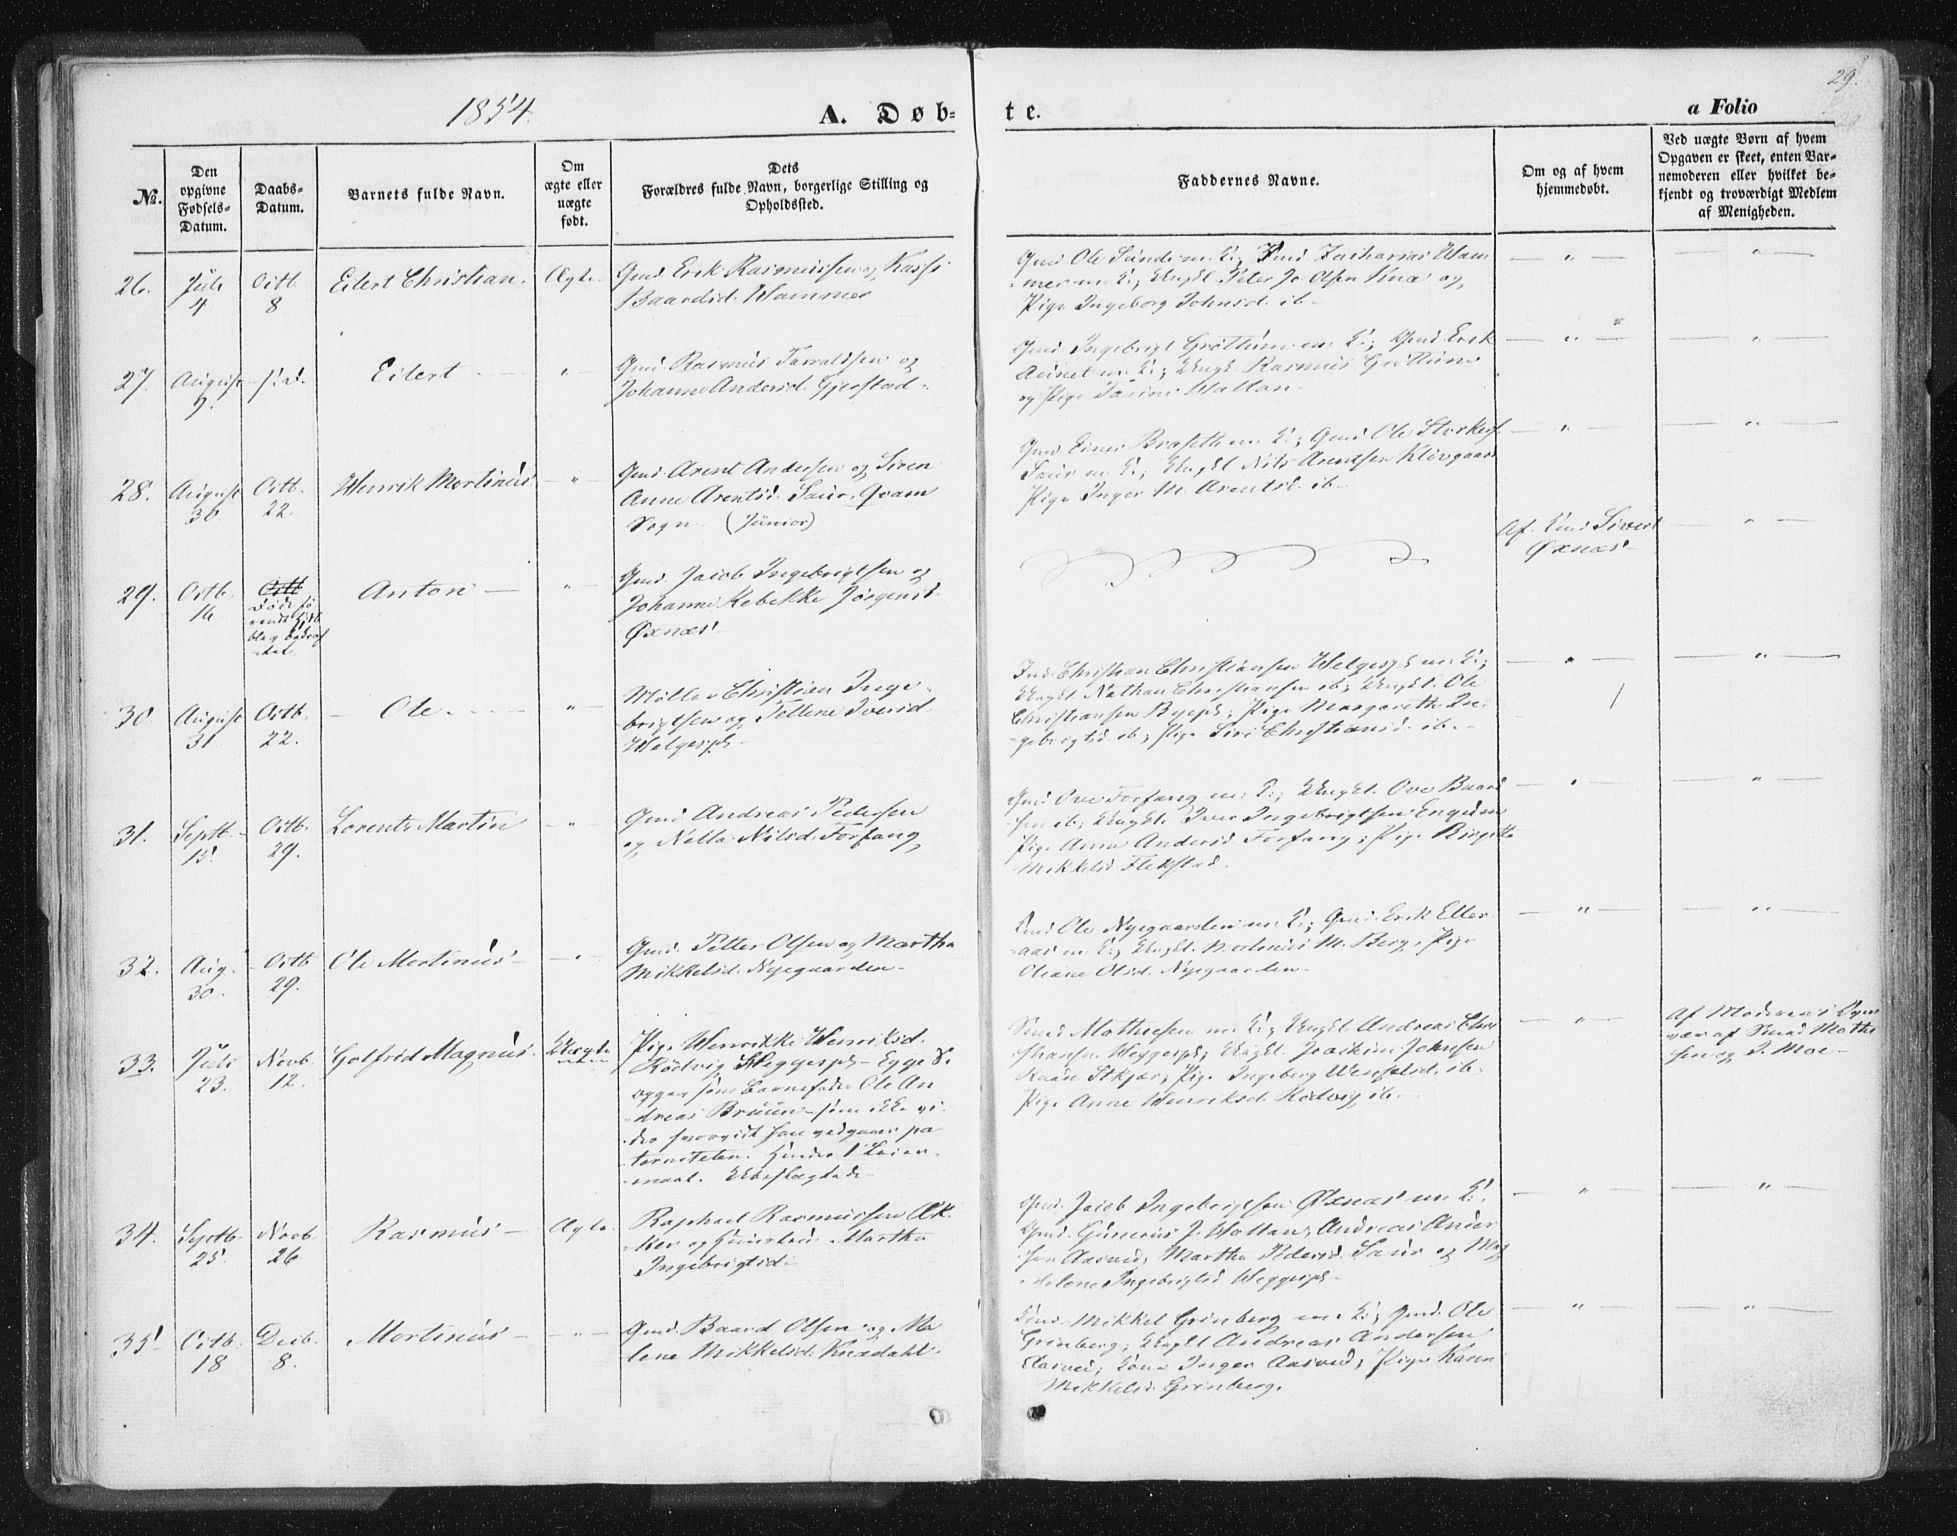 29.
1854.
A. Døb-
te.
a Folio
No.
Den
opgivne
Fødsels-
Datum.
Daabs-
Datum.
Barnets fulde Navn.
Om
ægte eller
uægte
født.
Dets
Forældres fulde Navn, borgerlige Stilling og
Opholdssted.
Faddernes Navne.
Om og af hvem
hjemmedøbt.
Ved uægte Børn af hvem
Opgaven er skeet, enten Bar-
nemoderen eller hvilket be-
kjendt og troværdigt Medlem
af Menigheden.
26.
Juli
4
Octb.
8
Eilert Christian.
Ægte
Gmd. Erik Rasmussen og
Baardsd. Hammer
Gmd. Ole Sunde m. K.; Zacharias Ham
mer m. K.; Ungkl. Peter Jo Olsen og
Pige Ingeborg Johnsd. ib
27.
August
9.
s. d.
Eilert
Gmd. Rasmus Tarraldsen og
Johanna Andersd. Gjerstad
Gmd. Ingebrigt Grøttum m. K.; Gmd. Erik
Aunet m. K.; Ungk. Rasmus Grøttum
og Pige Hallan
28.
August
30
Octb.
22.
Henrik Martinus
Gmd. Arent Andersen og Siren
Anne Arentsd. Saur, Qvam
Sogn (Junior)
Gmd. Einer Braseth m. K.; Gmd. Ole Storkers.
Saur m. K.; Ungkl Nils Arentsen Klovgaard
Pige Inger M. Arentsd. ib
29.
Octb.
16
Octb
Døde
Anton
Gmd. Jacob Ingebrigtsen og
Johanna Rebekke Jørgensd.
Øxnæs
Af Sivert
Øxnæs
30.
August
31
Octb.
22.
Ole
Møller Christian Inge-
brigtsen og Pettene Iversd
Helgesp
Christian Christiansen Helgespl. m. K.;
Ungkl. Nathan Christiansen ib; Ungkl. Ole
Christiansen; Pige Margareth In-
gebrigtsd. ib; Pige Siri Christiansd. ib.
31.
Septb.
15.
Octb.
29.
Lorents Martin
Gmd Andreas Pedersen
og Nella Nilsd. Forfang
Gmd Ove Forfang m. K.; Ungkl. Ove Baard
sen ib; Ungkl. Iver Ingebrigtsen Engum
Pige Anne Andersd. Forfang; Pige Birgitte
Mikkelsd Flekstad.
32.
Aug.
30.
Octb
29.
Ole Martinus
Gmd. Petter Olsen og Martha
Mikkelsd. Nygaarden
Ole Nygaarden m. K.; Gmd. Erik Eller
aas m. K.; Ungkl. Martinus M. Berg; Pige
Oliane Olsd. Nygaarden.
33.
Juli
23.
Novb.
12.
Golfrid Magnus
Uægte
Pige Henrikke Henriksd.
Rødvig Heggespl. Egge S.
opgav som Barnefader Ole An
dreas Bruun som ikke vi-
des hvorvidt han vedgaaer pa
terniteten. Hendes 1 Leier-
maal. Ubeslægtede
Smed Mathiesen m. K.; Ungkl. Andreas Chri
stiansen Heggespl; Ungkl. Joakim Johnsen
Stkjær; Pige Ingeborg ib.
Pige Anne Henriksd. Rødvig ib.
Af Moderens
af Smed Mathi
sen og J. Moe
34.
Septb.
25.
Novb.
26
Rasmus
Ægte
Raphael Rasmussen Ak
ker og Martha
Ingebrigtsd.
Gmd. Jacob Ingebrigtsen Øxnæs m. K.
Gmd. Gunerius J. Hallan; Andreas Ander
sen Aasved; Martha Pedersd. Saur og Mag
dalene Ingebrigtsd Heggespl
35
Octb.
18
Decb.
8.
Martinus
Gmd. Baard Olsen og Ma
lena Mikkelsd. Knædahl.
Mikkel Grønberg m. K.; Gmd. Ole
Grønberg; Ungkl Andreas Andersen
Aasved; Kone Inger Aasved; Pige Karen
Mikkelsd. Grønberg.